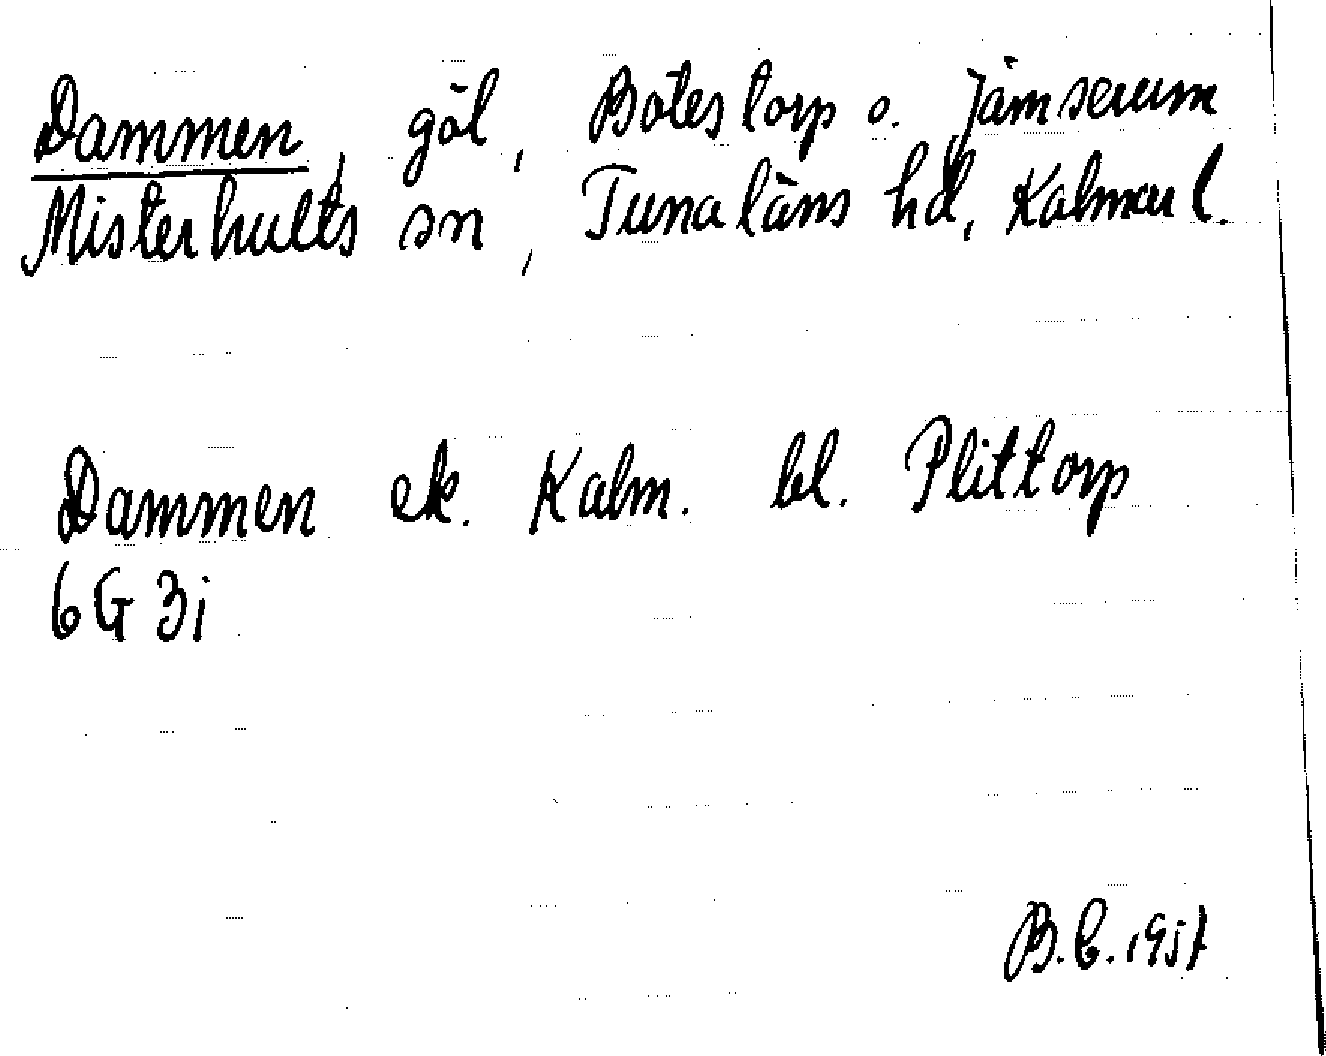 Dammen, göl, Botestorp o. Jämserum
Misterhults sn, Tunaläns hd, Kalmar l.
Dammen ek. Kalm. bl. Plittorp
6G 3i
B.C. 1957